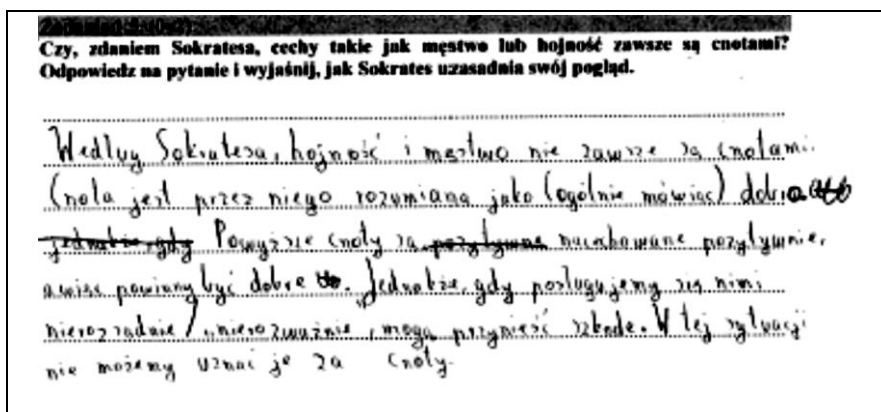 Czy, zdaniem Sokratesa, cechy takie jak męstwo lub hojność zawsze są cnotami?
Odpowiedz na pytanie i wyjaśnij, jak Sokrates uzasadnia swój pogląd.
Według Sokratesa, hojność i męstwo nie zawsze są cnotami.
Cnota jest przez niego rozumiana jako (ogólnie mówiąc) dobra
jednakże gdy Powyższe cnoty są pozytywne nacechowane pozytywnie,
a więc powinny być dobre. Jednakże, gdy posługujemy się nimi
nierozsądnie / nierozważnie, mogą przynieść szkodę. W tej sytuacji
nie możemy uznać je za cnoty.